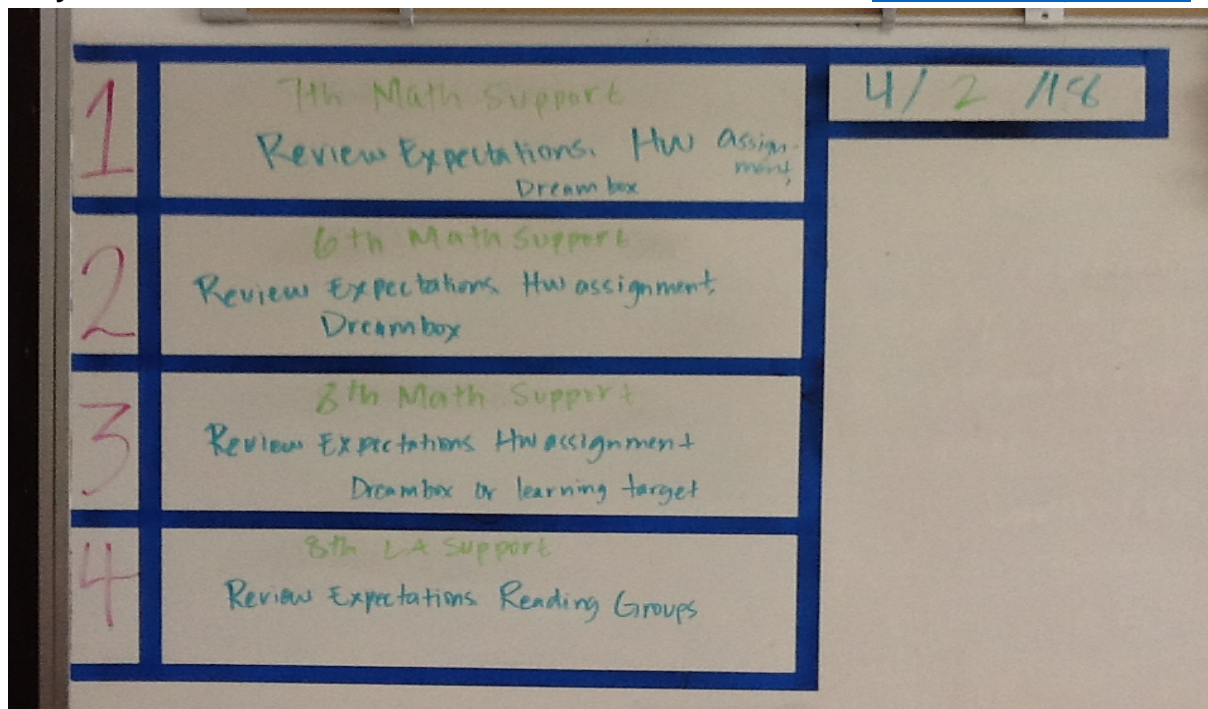 4/2/18
1
7th Math Support
Review Expectations. Hw assign-
ment,
Dreambox
2
6th Math Support
Review Expectations. Hw assignment,
Dreambox
3
8th Math Support
Review Expectations Hw assignment
Dreambox or learning target
4
8th LA Support
Review Expectations Reading Groups